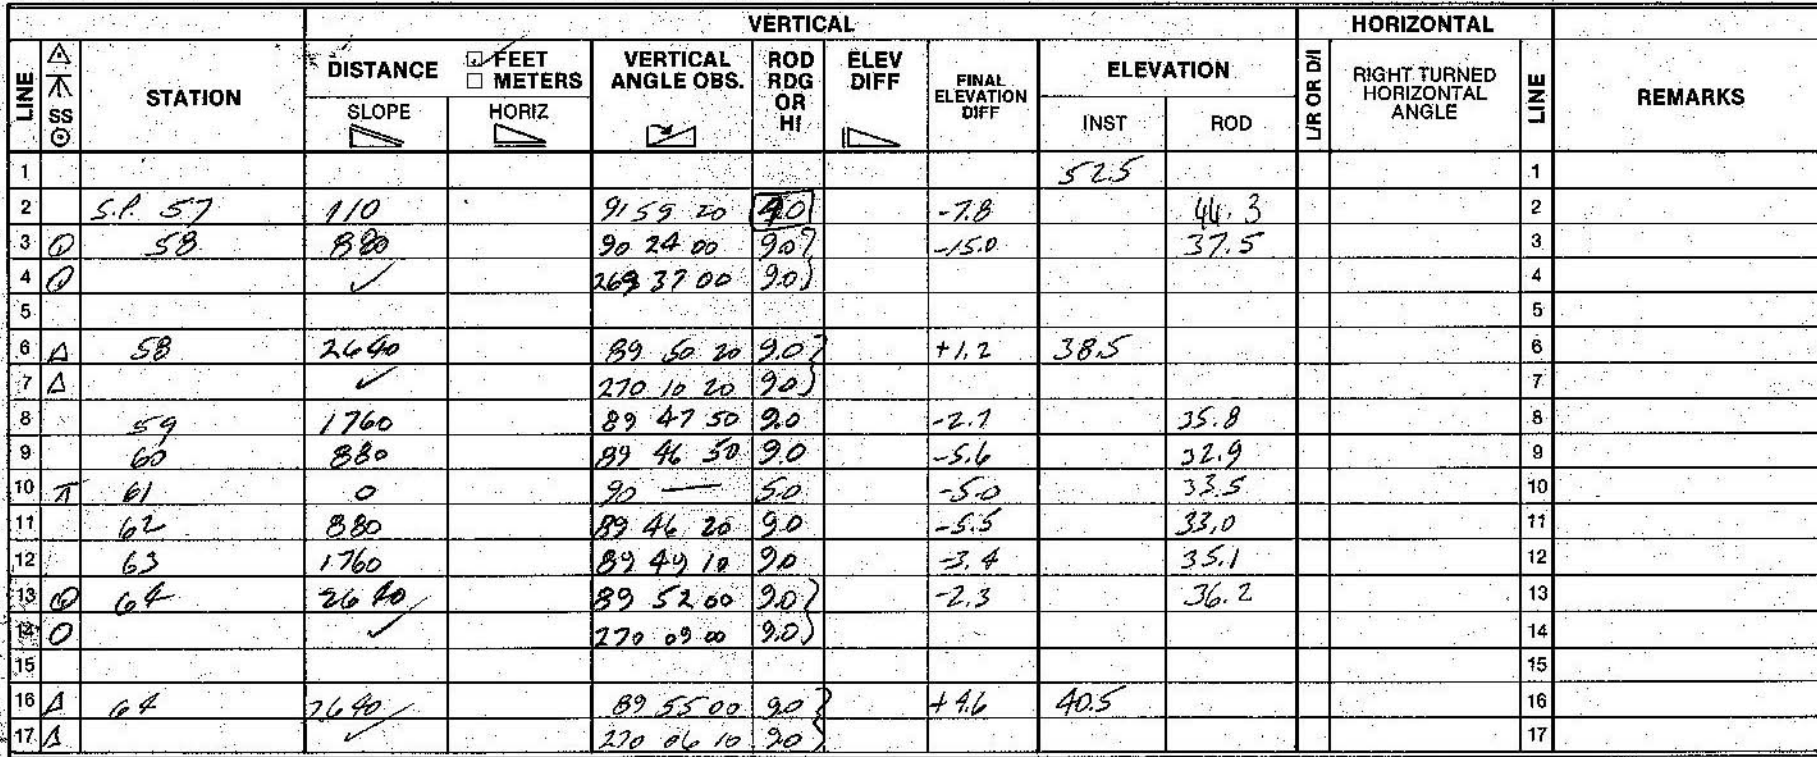 VERTICAL HORIZONTAL
LINE SS STATION DISTANCE FEET METERS SLOPE HORIZ VERTICAL ANGLE OBS. ROD RDG OR HI ELEV DIFF FINAL ELEVATION DIFF ELEVATION INST ROD L/R OR D/I RIGHT TURNED HORIZONTAL ANGLE LINE REMARKS
1 52.5 1
2 S.P. 57 110 91 59 20 -7.8 44.3 2
3 58 880 90 24 00 9.0 -15.0 37.5 3
4 ✓ 269 37 00 9.0 4
5 5
6 Δ 58 2640 89 50 20 9.0 +1.2 38.5 6
7 Δ ✓ 270 10 20 9.0 7
8 59 1760 89 47 50 9.0 -2.7 35.8 8
9 60 880 89 46 50 9.0 -5.6 32.9 9
10 61 0 90 — 5.0 -5.0 33.5 10
11 62 880 89 46 20 9.0 -5.5 33.0 11
12 63 1760 89 49 10 9.0 -3.4 35.1 12
13 64 2640 89 52 00 9.0 -2.3 36.2 13
14 ✓ 270 09 00 9.0 14
15 15
16 Δ 64 2640 89 55 00 9.0 40.5 16
17 Δ ✓ 270 06 10 9.0 17